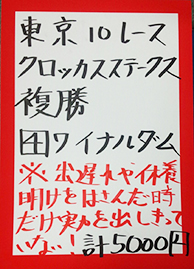 東京10レース
クロッカスステークス
複勝
田ワイナルダム
※出遅れや休養
明けをはさんだ時
だけ実力を出しきって
いない！計5000円